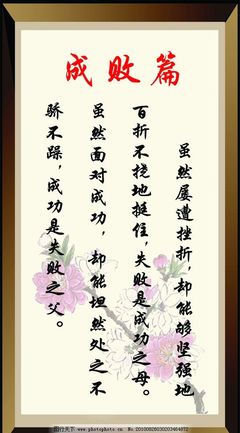 成败篇
虽然屡遭挫折，却能够坚强地
百折不挠地挺住，失败是成功之母。
虽然面对成功，却能坦然处之不
骄不躁，成功是失败之父。